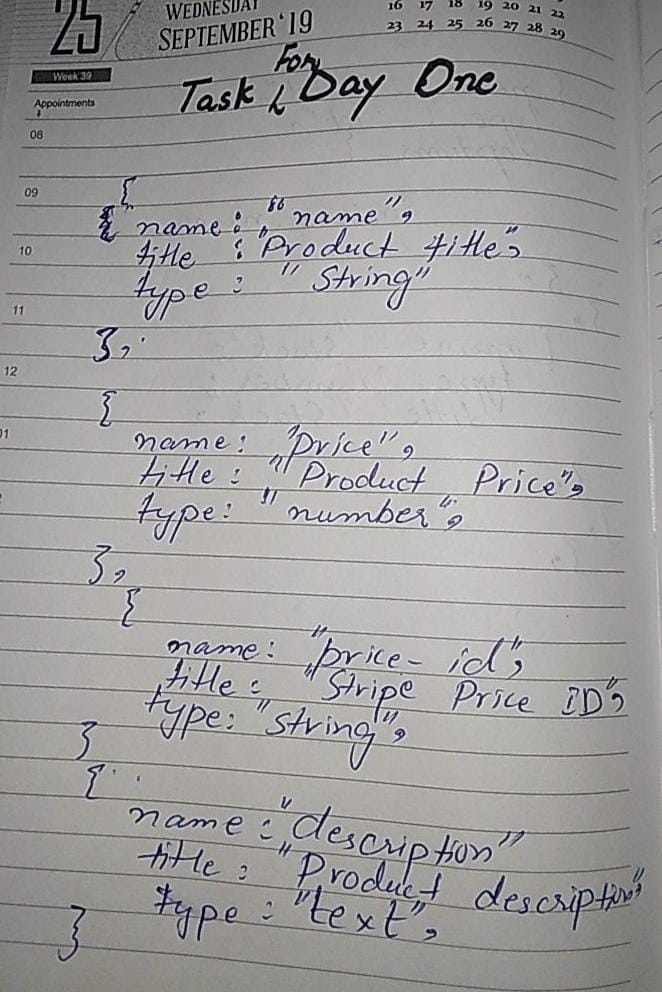 25
WEDNESDAY
SEPTEMBER '19
16 17 18 19 20 21 22
23 24 25 26 27 28 29
Week 39
Appointments
Task For Day One
08
09
10
11
12
01
{
name: "name",
title : "Product title",
type : "String"
},
{
name: "price",
title : "Product Price",
type: "number",
},
{
name: "price- id",
title : "Stripe Price ID",
type: "string",
}
{
name : "description"
title : "Product description"
type : "text",
}